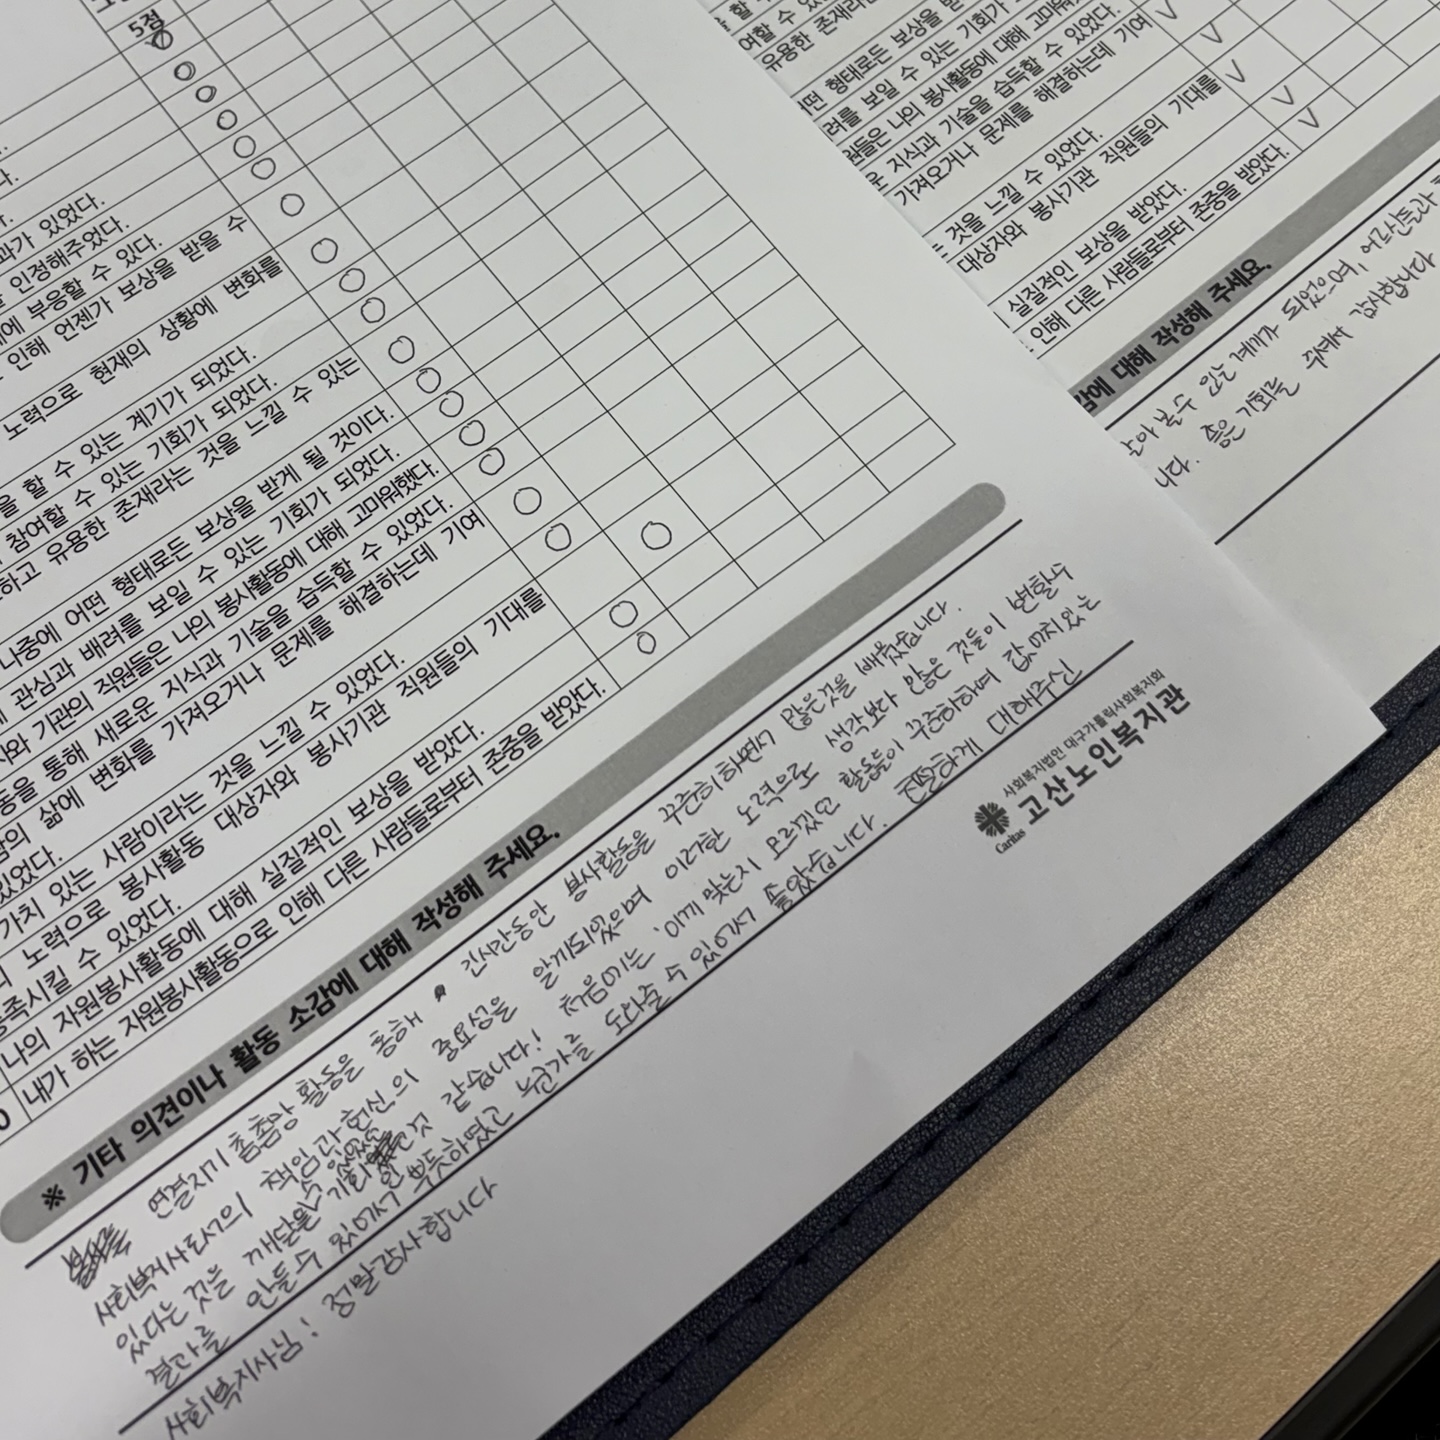 5점
과가 있었다.
인정해주었다.
에 부응할 수 있다.
인해 언젠가 보상을 받을 수
노력으로 현재의 상황에 변화를
을 할 수 있는 계기가 되었다.
참여할 수 있는 기회가 되었다.
하고 유용한 존재라는 것을 느낄 수 있는
나중에 어떤 형태로든 보상을 받게 될 것이다.
관심과 배려를 보일 수 있는 기회가 되었다.
와 기관의 직원들은 나의 봉사활동에 대해 고마워했다.
동을 통해 새로운 지식과 기술을 습득할 수 있었다.
람의 삶에 변화를 가져오거나 문제를 해결하는데 기여
있었다.
가치 있는 사람이라는 것을 느낄 수 있었다.
노력으로 봉사활동 대상자와 봉사기관 직원들의 기대를
충족시킬 수 있었다.
나의 자원봉사활동에 대해 실질적인 보상을 받았다.
0 내가 하는 자원봉사활동으로 인해 다른 사람들로부터 존중을 받았다.
※ 기타 의견이나 활동 소감에 대해 작성해 주세요.
연결지기 촘촘망 활동을 통해 긴시간동안 봉사활동을 꾸준히하면서 많은것을 배웠습니다.
사회복지사로서의 책임과 헌신의 중요성을 알게되었으며 이러한 노력으로 생각보다 많은 것들이 변할수
있다는 것을 깨달을 수 있었던 기회 것 같습니다! 처음에는 이게 맞는지 모르겠던 활동들이 꾸준하하며 값어치있는
결과를 만들수 있어서 뿌듯하였고 누군가를 도와줄 수 있어서 좋았습니다. 친절하게 대해주신
사회복지사님! 정말감사합니다
Caritas
사회복지법인 대구가톨릭사회복지회
고산노인복지관
여할 수 있
유용한 존재라는
떤 형태로든 보상을 받
려를 보일 수 있는 기회가
원들은 나의 봉사활동에 대해 고마워했
운 지식과 기술을 습득할 수 있었다.
가져오거나 문제를 해결하는데 기여
것을 느낄 수 있었다.
대상자와 봉사기관 직원들의 기대를
실질적인 보상을 받았다.
인해 다른 사람들로부터 존중을 받았다.
감에 대해 작성해 주세요.
볼수 있는 계기가 되었으며, 어르신들과
니다. 좋은 기회를 주셔서 감사합니다